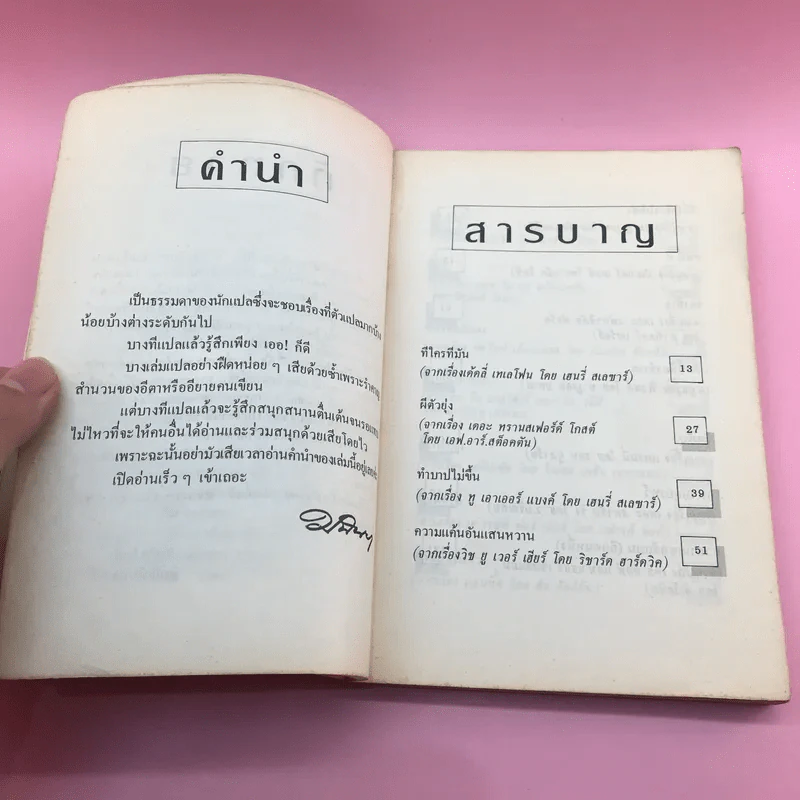 คำนำ
เป็นธรรมดาของนักแปลซึ่งจะชอบเรื่องที่ตัวแปลมากบ้าง
น้อยบ้างต่างระดับกันไป
บางทีแปลแล้วรู้สึกเพียง เออ! ก็ดี
บางเล่มแปลอย่างฝืดหน่อย ๆ เสียด้วยซ้ำเพราะรำคาญ
สำนวนของอีตาหรืออียายคนเขียน
แต่บางทีแปลแล้วจะรู้สึกสนุกสนานตื่นเต้นจน
ไม่ไหวที่จะให้คนอื่นได้อ่านและร่วมสนุกด้วยเสียโดยไว
เพราะฉะนั้นอย่ามัวเสียเวลาอ่านคำนำของเล่มนี้อยู่เลย
เปิดอ่านเร็ว ๆ เข้าเถอะ
สารบาญ
ทีใครทีมัน 13
(จากเรื่องเด้คลี่ เทเลโฟน โดย เฮนรี่ สเลซาร์)
ผีตัวยุ่ง 27
(จากเรื่อง เดอะ ทรานสเฟอร์ด์ โกสต์
โดย เอฟ.อาร์.สต็อคตัน)
ทำบาปไม่ขึ้น 39
(จากเรื่อง ทู เอาเออร์ แบงค์ โดย เฮนรี่ สเลซาร์)
ความแค้นอันแสนหวาน 51
(จากเรื่องวิช ยู เวอร์ เฮียร์ โดย ริชาร์ด ฮาร์ดวิค)